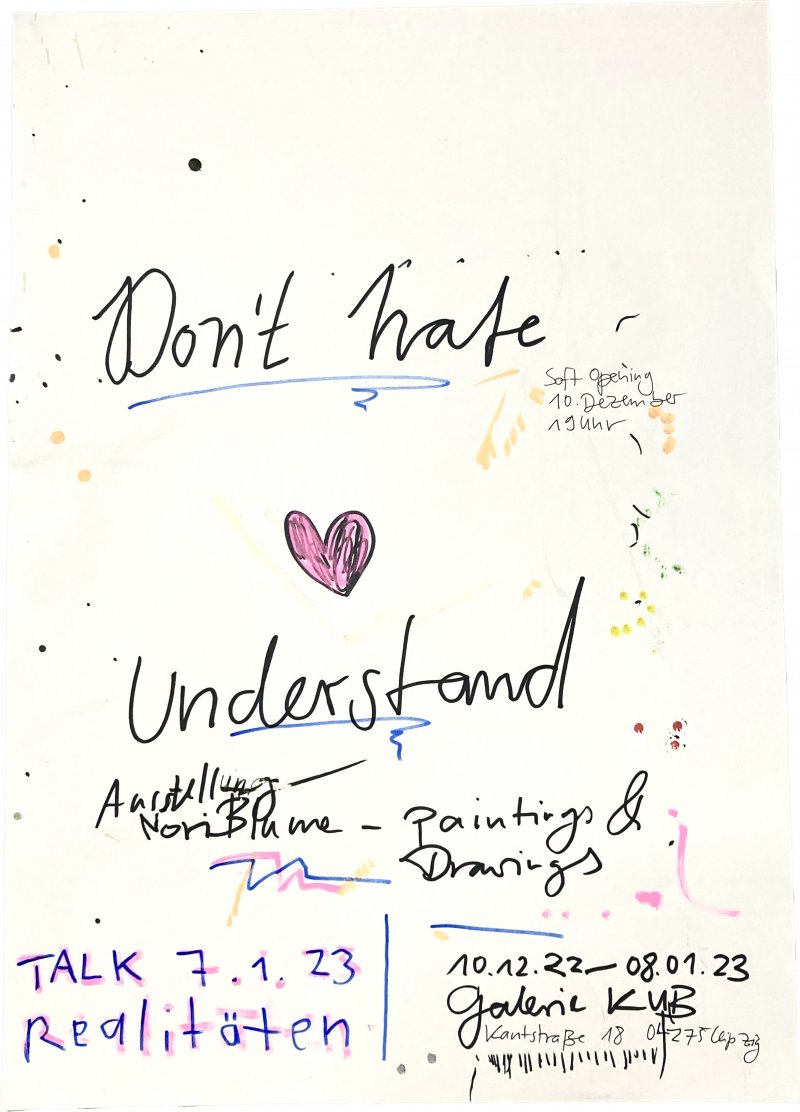 Don't hate
Soft Opening
10. Dezember
19 Uhr
Understand
Ausstellung
Nori Blume – Paintings &
Drawings
TALK 7.1.23
Realitäten
10.12.22 – 08.01.23
Galerie KUB
Kantstraße 18 04275 Leipzig